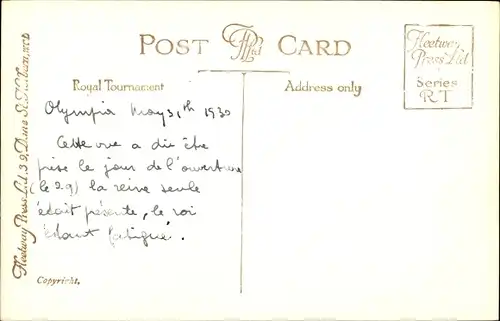 POST CARD
FPLtd
Fleetway
Press Ltd
Series
RT
Royal Tournament
Address only
Olympia May 31th 1930
Cette vue a dû être
prise le jour de l'ouverture
(le 29) la reine seule
était présente, le roi
étant fatigué.
Fleetway Press Ltd. 3-9, Dane St. Holborn, W.C.1
Copyright.